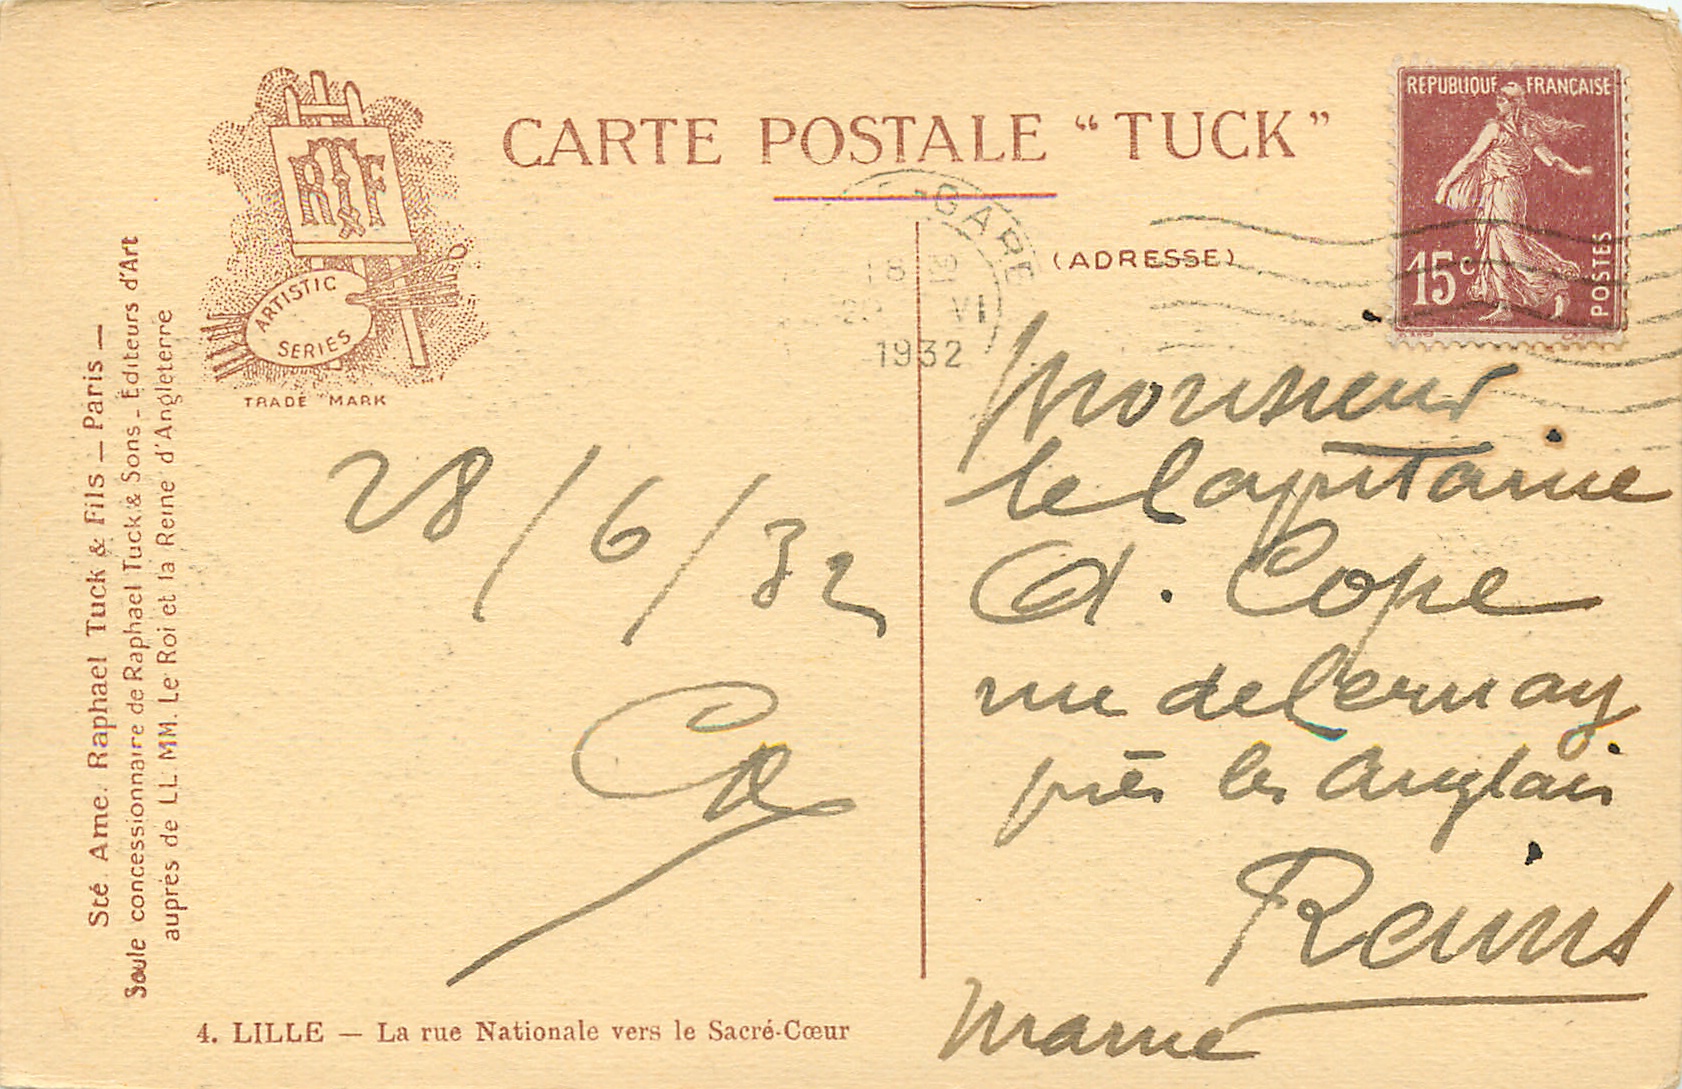 CARTE POSTALE "TUCK"
REPUBLIQUE FRANÇAISE
15c
POSTES
RTF
ARTISTIC
SERIES
TRADE MARK
-GARE
18
VI
1932
(ADRESSE)
Sté. Ame. Raphael Tuck & Fils — Paris —
Seule concessionnaire de Raphael Tuck & Sons - Éditeurs d'Art
auprès de LL. MM. Le Roi et la Reine d'Angleterre
28/6/32
Monsieur
le Capitaine
A. Cope
rue de Cernay
près les Anglais
Reims
Marne
4. LILLE — La rue Nationale vers le Sacré-Cœur